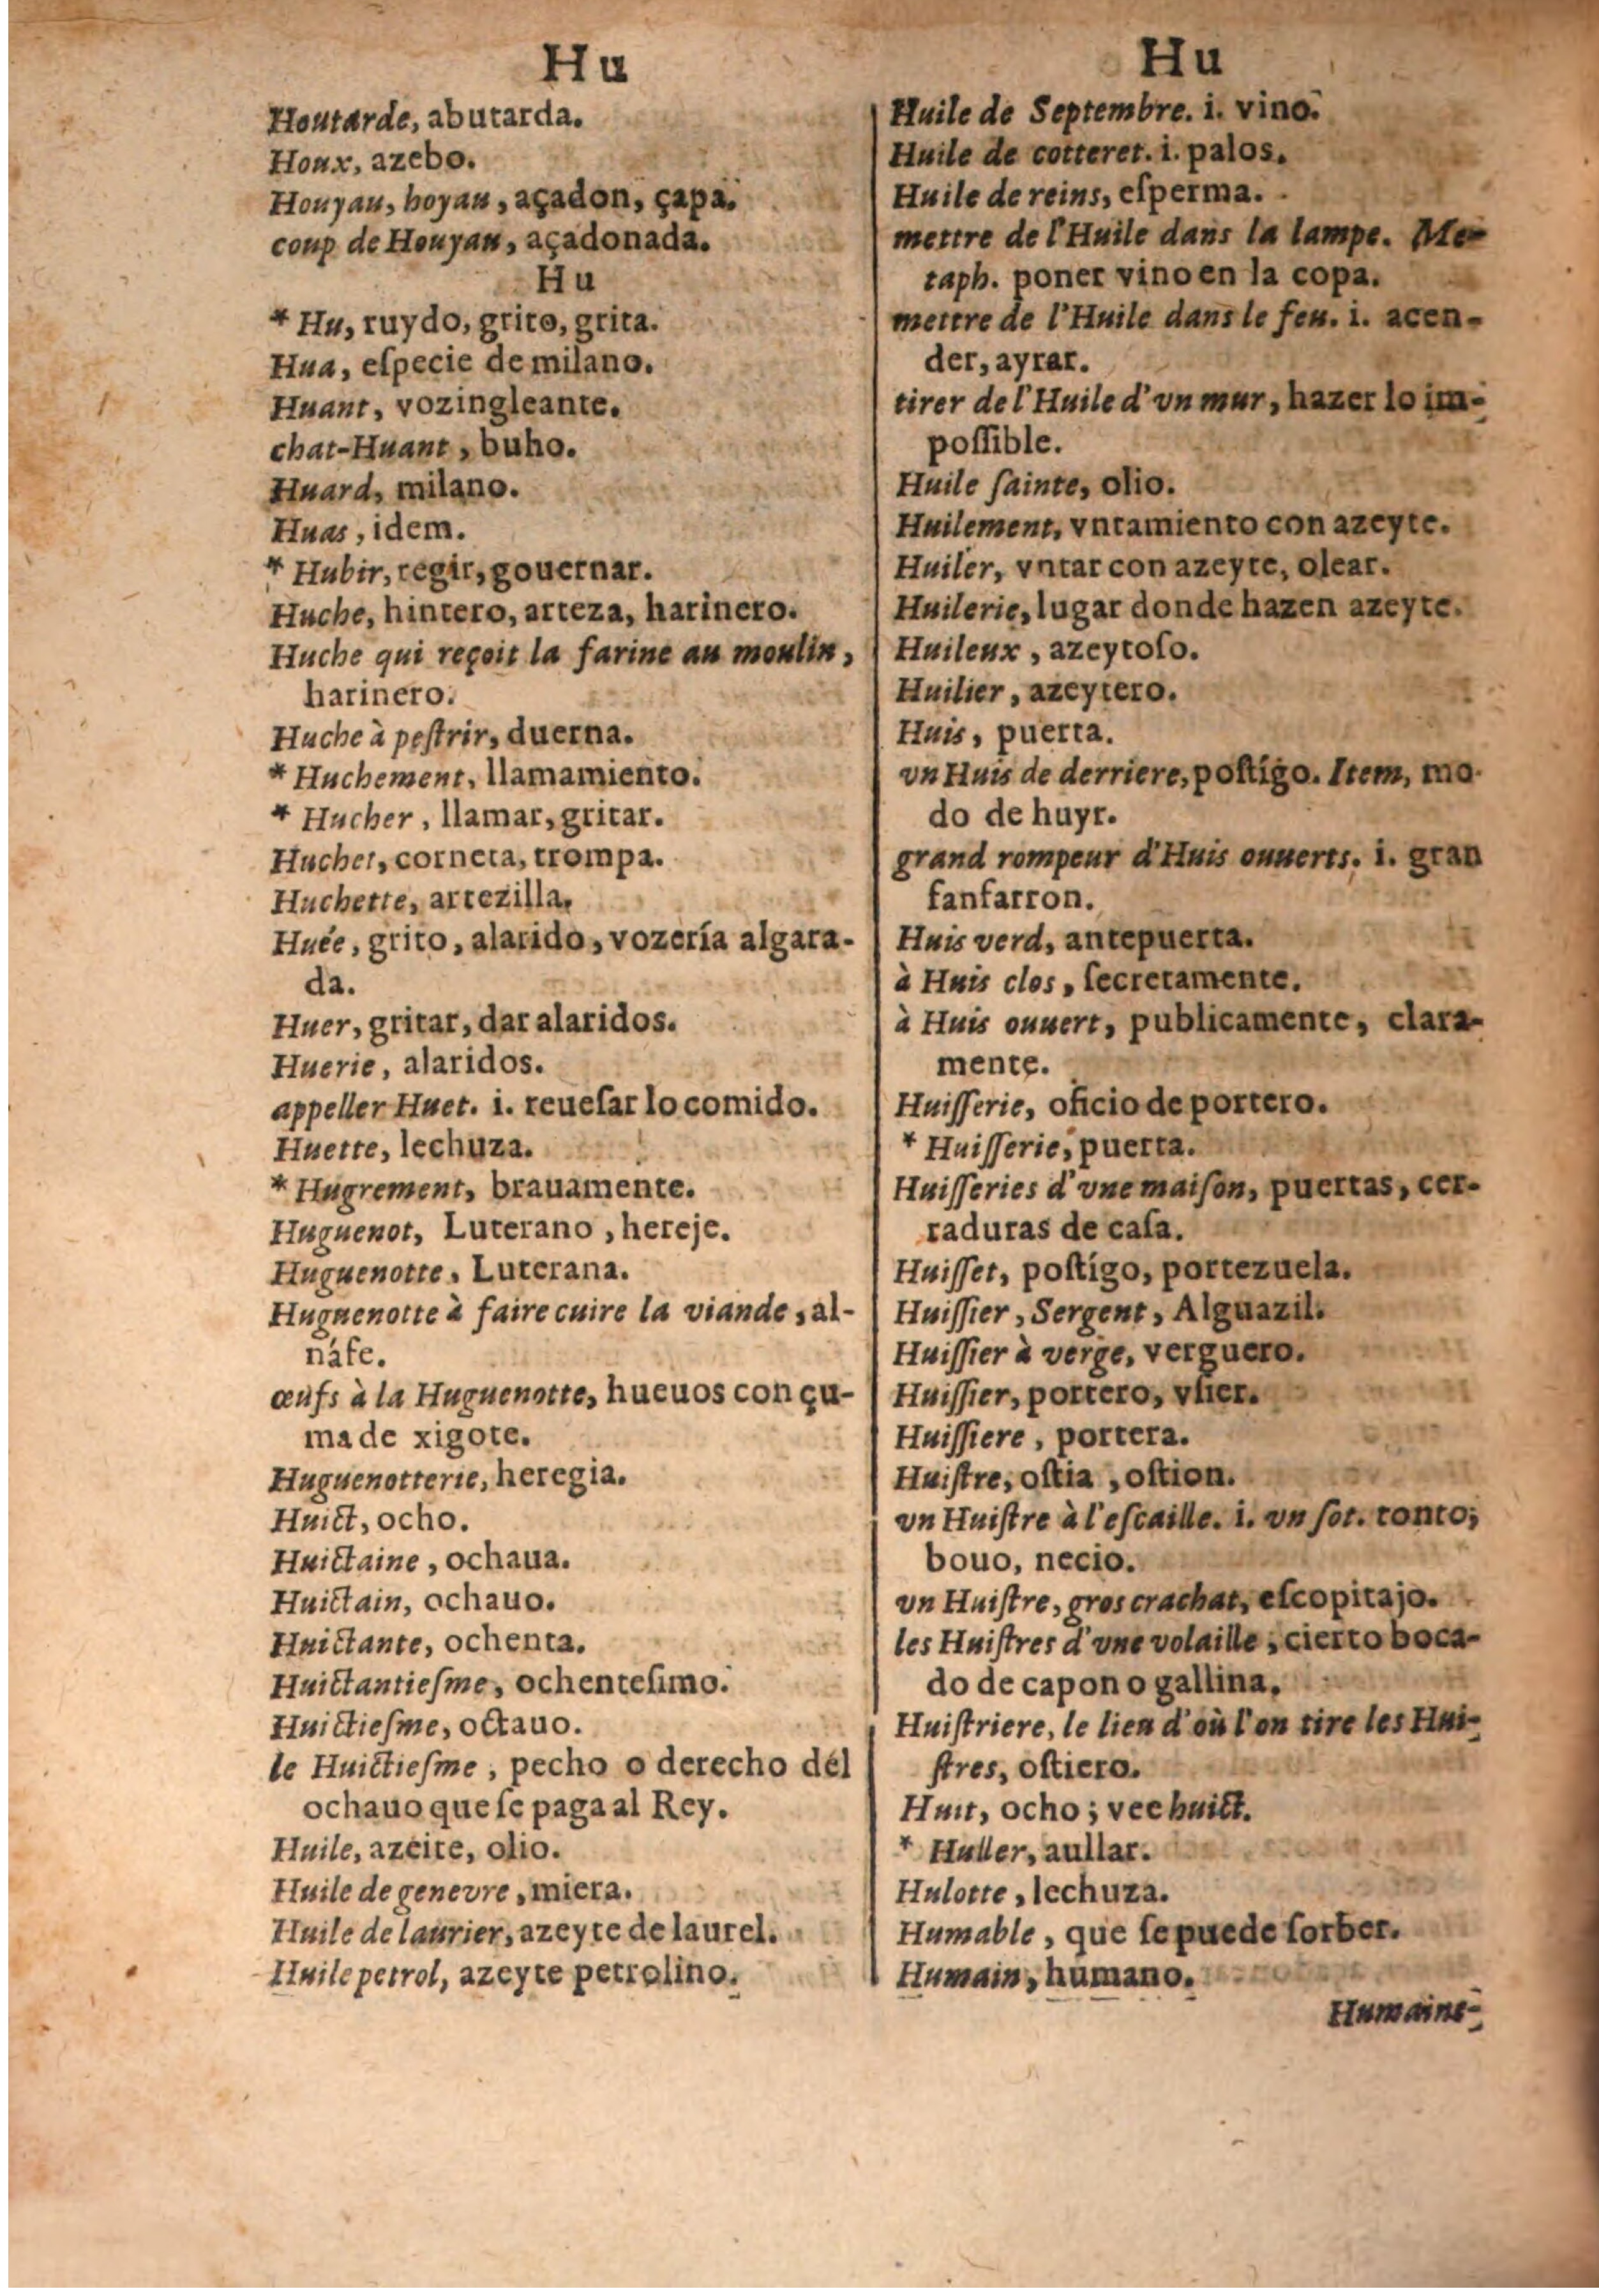 Hu
Houtarde, abutarda.
Houx, azebo.
Houyau, hoyau, açadon, çapa.
coup de Houyau, açadonada.
Hu
* Hu, ruydo, grito, grita.
Hua, eſpecie de milano.
Huant, vozingleante.
chat-Huant, buho.
Huard, milano.
Huas, idem.
* Hubir, regir, gouernar.
Huche, hintero, arteza, harinero.
Huche qui reçoit la farine au moulin,
harinero.
Huche à peſtrir, duerna.
* Huchement, llamamiento.
* Hucher, llamar, gritar.
Huchet, corneta, trompa.
Huchette, artezilla.
Huée, grito, alarido, vozería algara-
da.
Huer, gritar, dar alaridos.
Huerie, alaridos.
appeller Huet. i. reueſar lo comido.
Huette, lechuza.
* Hugrement, brauamente.
Huguenot, Luterano, hereje.
Huguenotte, Luterana.
Huguenotte à faire cuire la viande, al-
náfe.
œufs à la Huguenotte, hueuos con çu-
ma de xigote.
Huguenotterie, heregia.
Huict, ocho.
Huictaine, ochaua.
Huictain, ochauo.
Huictante, ochenta.
Huictantieſme, ochenteſimo.
Huictieſme, octauo.
le Huictieſme, pecho o derecho dél
ochauo que ſe paga al Rey.
Huile, azeite, olio.
Huile de genevre, miera.
Huile de laurier, azeyte de laurel.
Huile petrol, azeyte petrolino.
Hu
Huile de Septembre. i. vino.
Huile de cotteret. i. palos.
Huile de reins, eſperma.
mettre de l'Huile dans la lampe. Me-
taph. poner vino en la copa.
mettre de l'Huile dans le feu. i. acen-
der, ayrar.
tirer de l'Huile d'vn mur, hazer lo im-
poſſible.
Huile ſainte, olio.
Huilement, vntamiento con azeyte.
Huiler, vntar con azeyte, olear.
Huilerie, lugar donde hazen azeyte.
Huileux, azeytoſo.
Huilier, azeytero.
Huis, puerta.
vn Huis de derriere, poſtígo. Item, mo-
do de huyr.
grand rompeur d'Huis ouuerts. i. gran
fanfarron.
Huis verd, antepuerta.
à Huis clos, ſecretamente.
à Huis ouuert, publicamente, clara-
mente.
Huiſſerie, oficio de portero.
* Huiſſerie, puerta.
Huiſſeries d'vne maiſon, puertas, cer-
raduras de caſa.
Huiſſet, poſtígo, portezuela.
Huiſſier, Sergent, Alguazil.
Huiſſier à verge, verguero.
Huiſſier, portero, vſier.
Huiſſiere, portera.
Huiſtre, oſtia, oſtion.
vn Huiſtre à l'eſcaille. i. vn ſot. tonto;
bouo, necio.
vn Huiſtre, gros crachat, eſcopitajo.
les Huiſtres d'vne volaille, cierto boca-
do de capon o gallina.
Huiſtriere, le lieu d'où l'on tire les Hui-
ſtres, oſtiero.
Huit, ocho; vee huict.
* Huller, aullar.
Hulotte, lechuza.
Humable, que ſe puede ſorber.
Humain, humano.
Humaine-